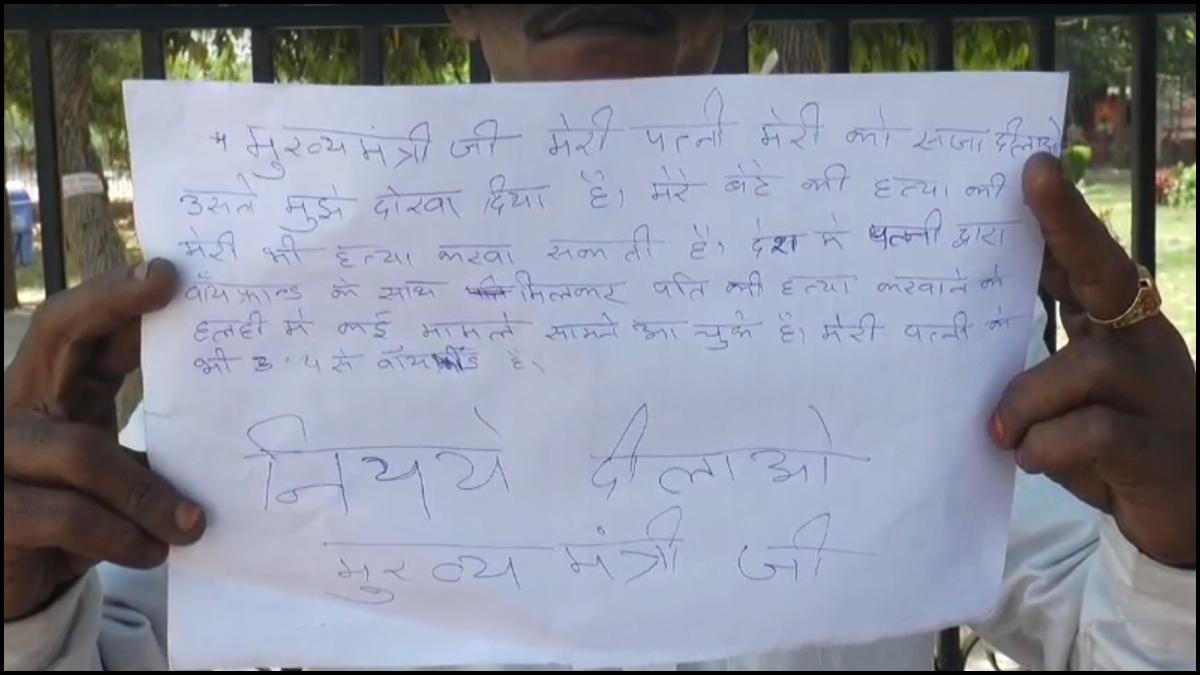 * मुख्यमंत्री जी मेरी पत्नी मेरी को सजा दीलाओ
उसने मुझे दोखा दिया है। मेरे बेटे की हत्या की
मेरी भी हत्या करवा सकती है। देश मे पत्नी द्वारा
बॉयफ्रान्ड के साथ मिलकर पति की हत्या करवाने के
हलही मे कई मामले सामने आ चुके है। मेरी पत्नी के
भी 3-4 से बॉय है।
नियये दीलाओ
मुख्य मंत्री जी